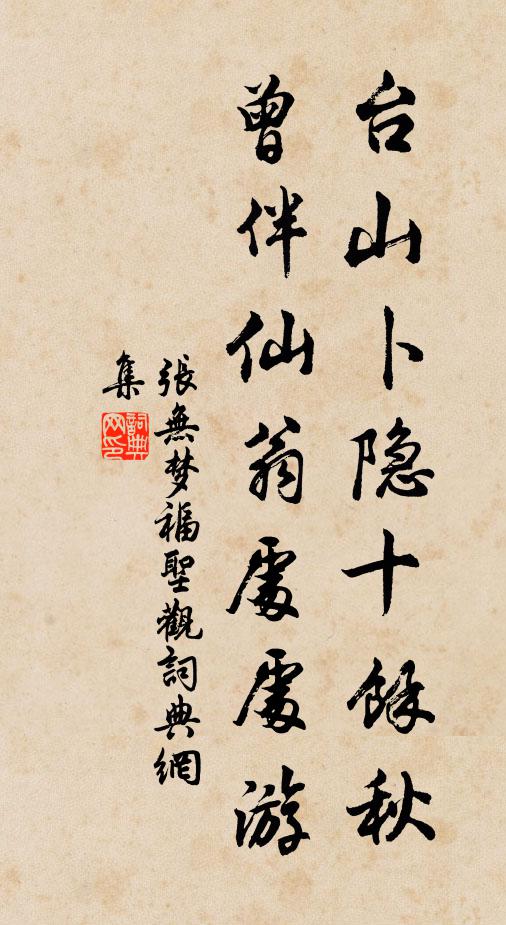 台山卜隐十餘秋
曾伴仙翁處處游
張無梦福聖觀詞典網
集
詞典
网印